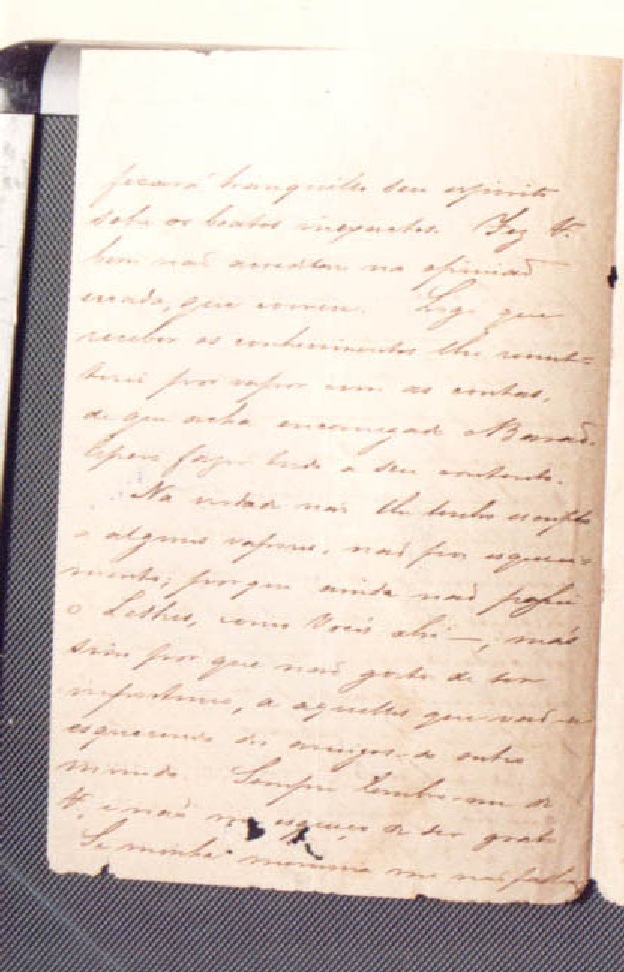 ficará tranquillo seu espirito
sobre os boatos inexactos. Fez V.
bem naõ acreditar na opiniaõ
errada, que correu. Logo que
receber os conhecimentos lhe remet=
terei por vapor com as contas,
de que acha encarregado Maraõ.
Espero fazer tudo a seu contento.
Na verdade naõ lhe tenho escripto
a alguns vapores, naõ por esqueci=
mento; porque ainda naõ passei
o Lethes, como Vocês ahi —, mas
sim por que naõ gosto de ser
importuno, a aquelles que vaõ-se
esquecendo dos amigos do outro
mundo. Sempre lembro-me de
V. e naõ me esqueço de ser grato
Se minha memoria me naõ falha